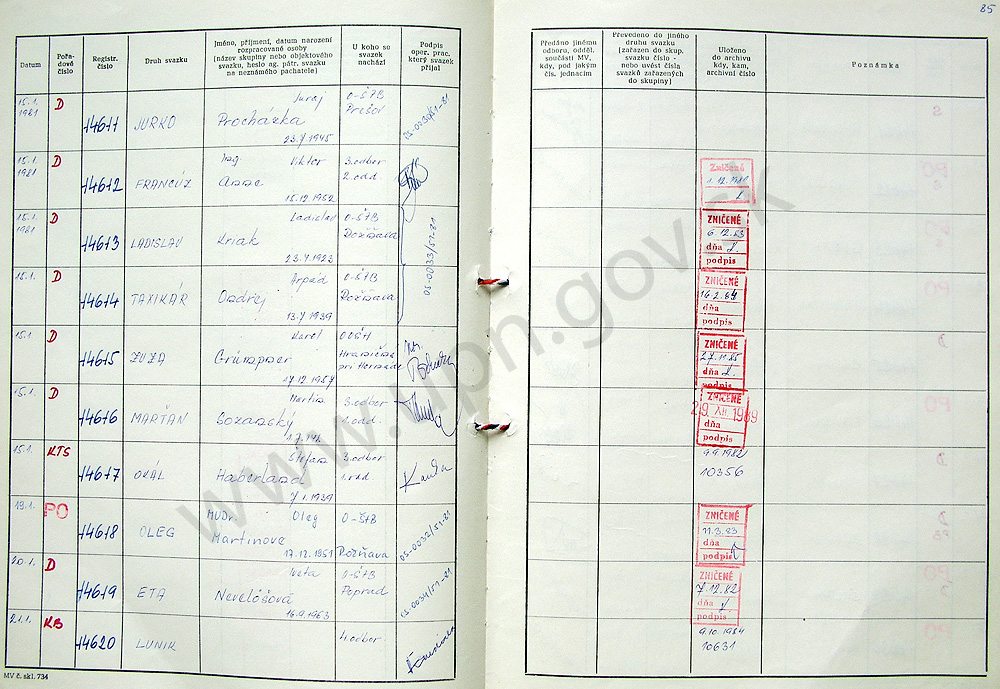 85
Datum
Pořa-
dové
číslo
Registr.
číslo
Druh svazku
Jméno, příjmení, datum narození
rozpracované osoby
(název skupiny nebo objektového
svazku, heslo ag. pátr. svazku
na neznámého pachatele)
U koho se
svazek
nachází
Podpis
oper. prac.
který svazek
přijal
Předáno jinému
odboru, odděl.
součásti MV,
kdy, pod jakým
čís. jednacím
Převedeno do jiného
druhu svazku
[zařazen do skup.
svazku číslo -
nebo uvést čísla
svazků zařazených
do skupiny]
Uloženo
do archivu
kdy, kam,
archivní číslo
Poznámka
15.1.
1981
D
14611
JURKO
Juraj
Procházka
23.7.1945
O-ŠTB
Prešov
15.1.
1981
D
14612
FRANCÚZ
Ing
Viktor
15.12.1952
3.odbor
2.odd
Zničené
15.1.
1981
D
14613
LADISLAV
Ladislav
Kriak
23.7.1923
O-ŠTB
Rožňava
OS-0033/57-81
ZNIČENÉ
6.12.83
dňa
podpis
15.1.
D
14614
TAXIKÁR
Arpád
Ondrej
13.7.1939
O-ŠTB
Rožňava
ZNIČENÉ
16.2.84
dňa
podpis
15.1.
D
14615
ZUZA
Karol
17.12.1957
pri Hornade
ZNIČENÉ
27.11.85
dňa
podpis
15.1.
D
14616
MARTAN
Martin
3.odbor
1.odd.
ZNIČENÉ
29. XII. 1989
dňa
podpis
15.1.
KTS
14617
OVÁL
Štefan
Haberland
7.1.1939
3.odbor
9.9.1982
10356
19.1.
PO
14618
OLEG
MUDr.
Oleg
Martinove
17.12.1951
O-ŠTB
Rožňava
OS-0032/57-81
ZNIČENÉ
11.3.83
dňa
podpis
20.1.
D
14619
ETA
Iveta
Nevelöšová
16.9.1963
O-ŠTB
Poprad
OS-0034/57-81
ZNIČENÉ
7.12.82
dňa
podpis
21.1.
KB
14620
LUNIK
4.odbor
9.10.1984
10631
MV č. skl. 734
www.upn.gov.sk